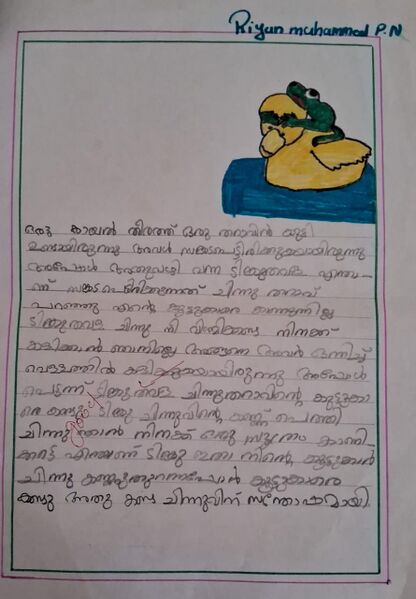 Riyan muhammed P.N
ഒരു കായൽ തീരത്ത് ഒരു താറാവിൻ കുട്ടി
ഉണ്ടായിരുന്നു അവൾ സങ്കടപെട്ടിരിക്കുകയായിരുന്നു
അപ്പോൾ അതുവഴി വന്ന ടിങ്കുതവള എന്താ-
ണ് സങ്കടപെട്ടിരിക്കുന്നത് ചിന്നു താറാവ്
പറഞ്ഞു എന്റെ കൂട്ടുകാരെ കാണുന്നില്ല
ടിങ്കുതവള ചിന്നു നീ വിഷമിക്കണ്ട നിനക്ക്
കളിക്കാൻ ഞാനില്ലെ അങ്ങനെ അവർ ഒന്നിച്ച്
വെള്ളത്തിൽ കളിക്കുകയായിരുന്നു അപ്പോൾ
പെട്ടന്ന് ടിങ്കു തവള ചിന്നുതാറാവിന്റെ കൂട്ടുകാ
രെ കണ്ടു ടിങ്കു ചിന്നുവിന്റെ കണ്ണ് പൊത്തി
ചിന്നു ഞാൻ നിനക്ക് ഒരു സൂത്രം കാണി-
ക്കട്ടെ എന്താണ് ടിങ്കു ഇതാ നിന്റെ കൂട്ടുകാർ
ചിന്നു കണ്ണുതുറന്നപ്പോൾ കൂട്ടുകാരെ
കണ്ടു അതു കണ്ട ചിന്നുവിന് സന്തോഷമായി.